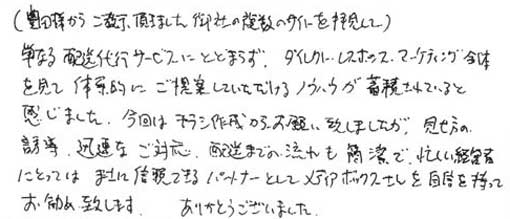 (豊田様からご教示頂きました御社の複数のサイトを拝見して)
単なる配送代行サービスにとどまらず、ダイレクト・レスポンス・マーケティング全体
を見て体系的にご提案していただけるノウハウが蓄積されていると
感じました。今回はチラシ作成からお願い致しましたが、見せ方の
誘導、迅速なご対応、配送までの流れも簡潔で、忙しい経営者
にとってはまさに信頼できるパートナーとしてメディアボックスさんを自信を持って
お勧め致します。 ありがとうございました。